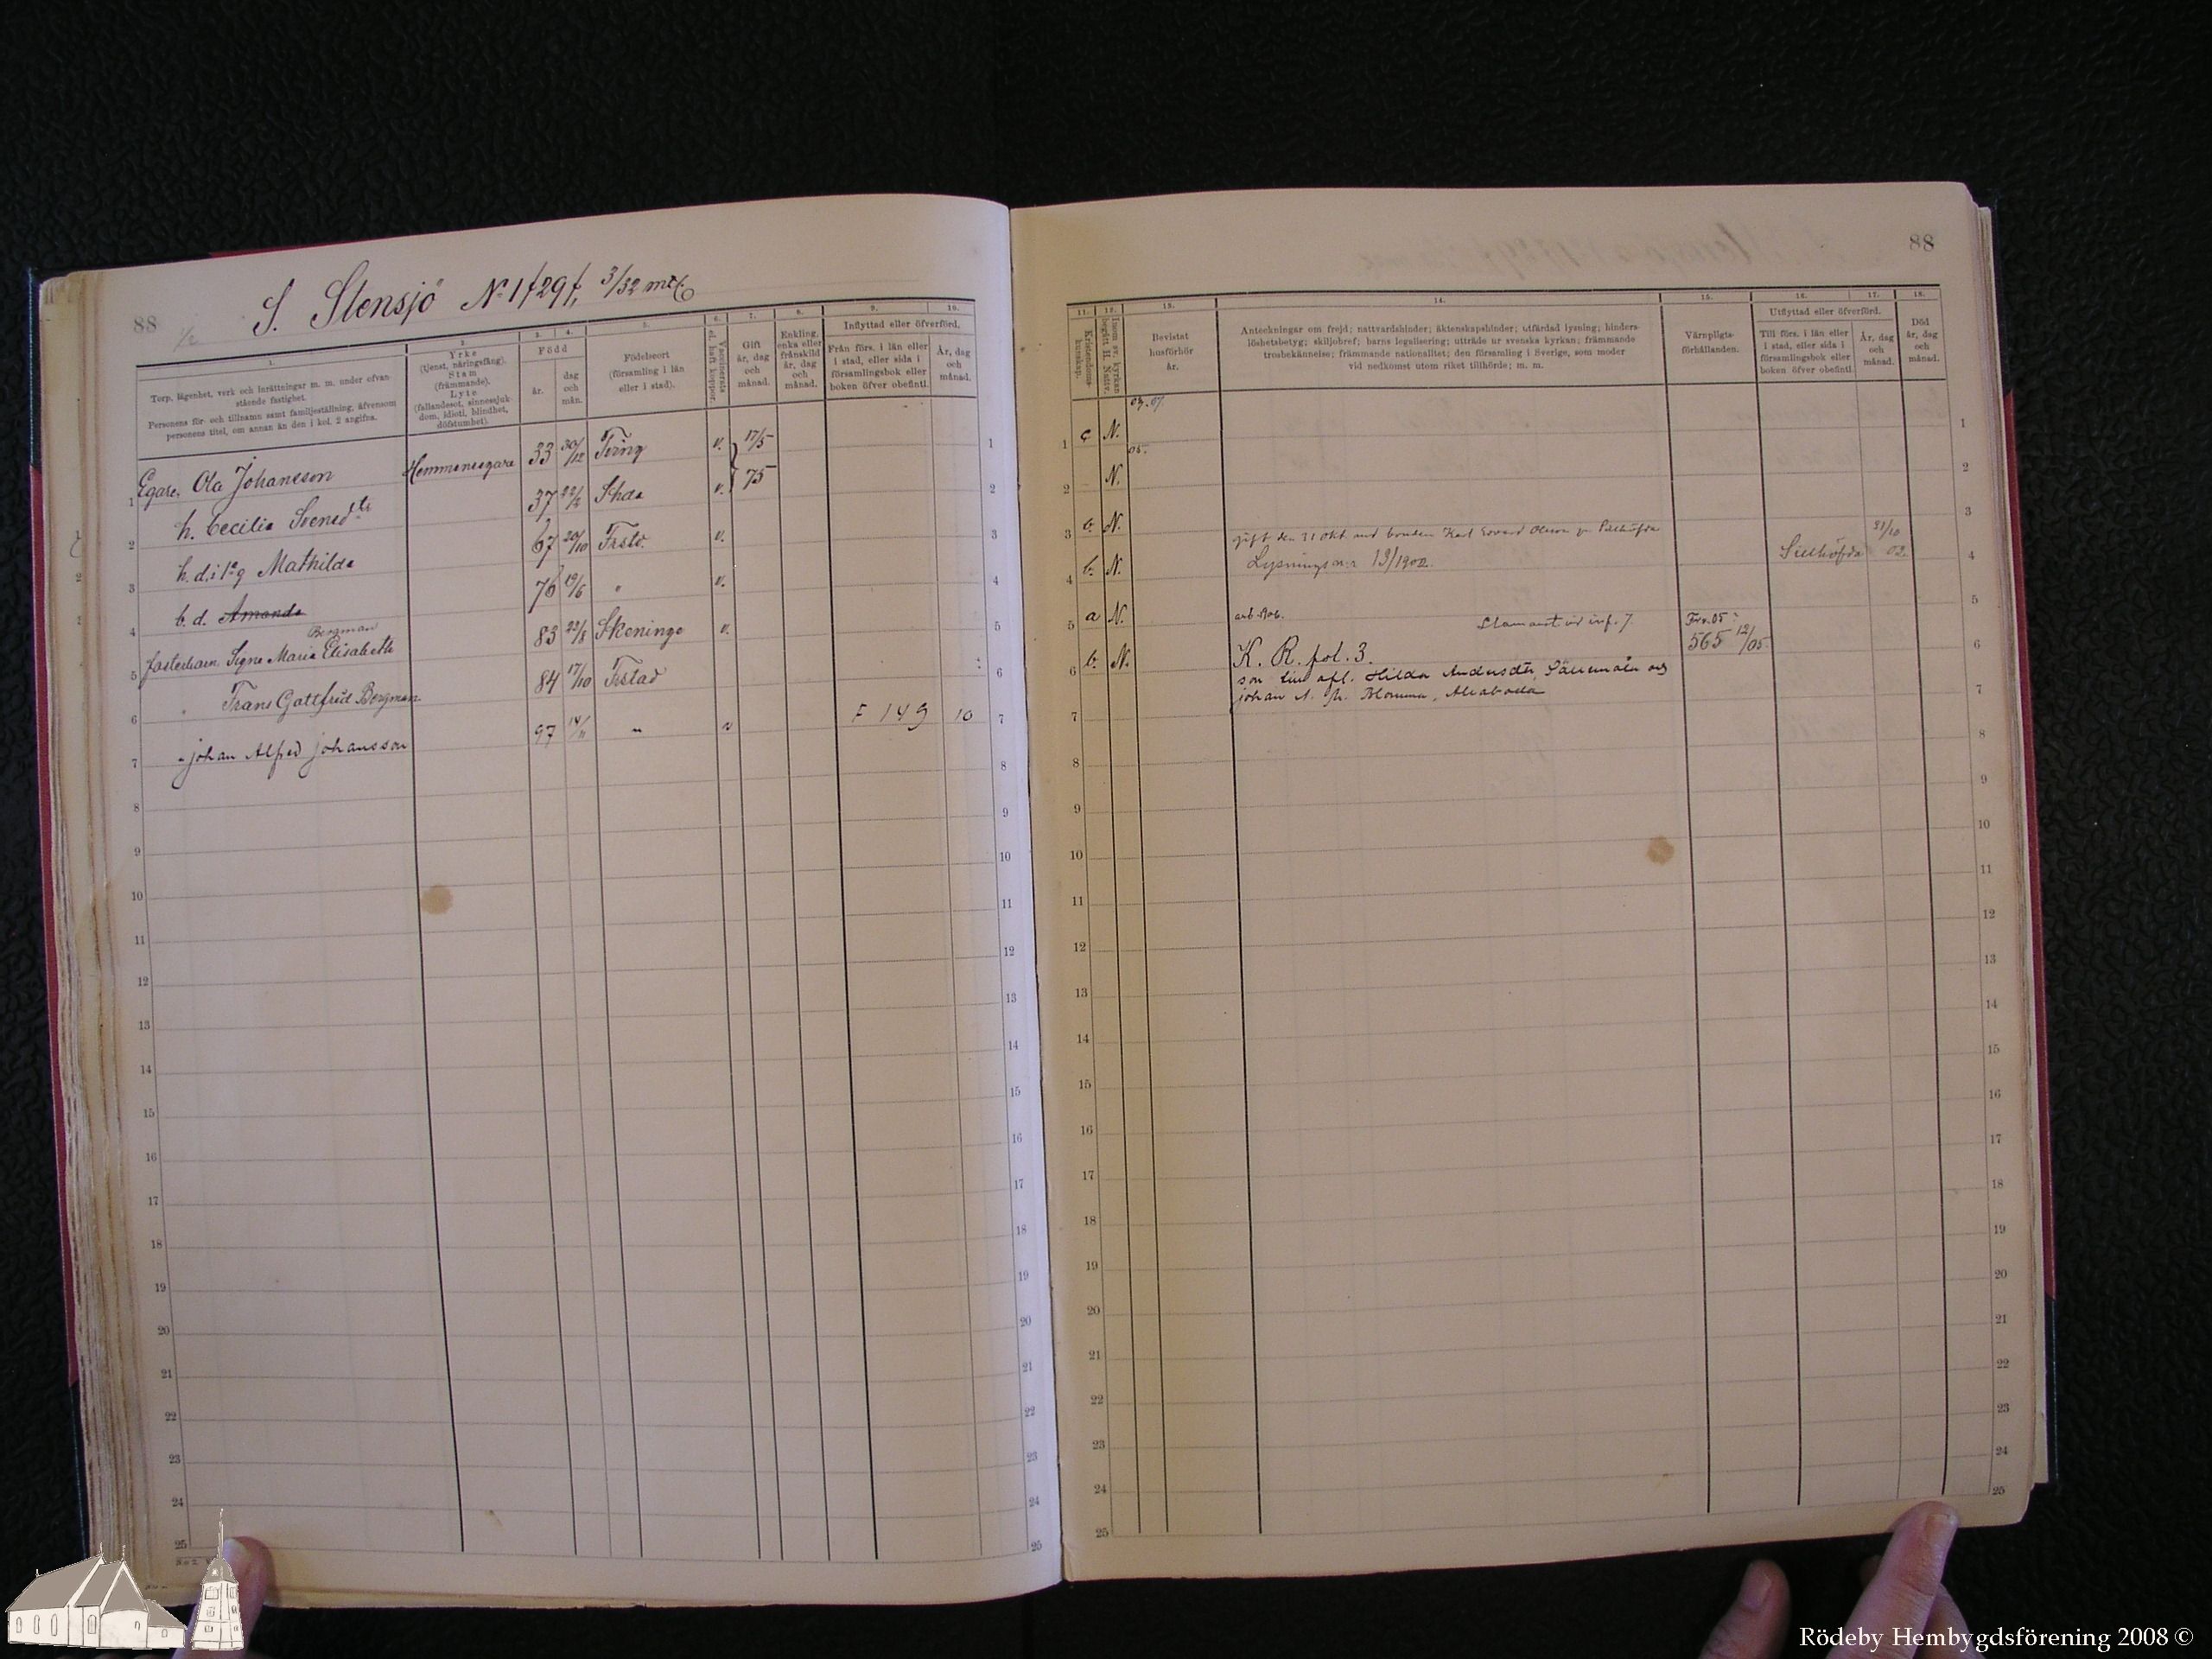 88
S. Stensjö No 1/29, 3/32 mtl
1. 2. 3. 4. 5. 6. 7. 8. 9. 10.
Torp, lägenhet, verk och inrättningar m. m. under ofvan-
stående fastighet.
Personens för- och tillnamn samt familjeställning, äfvensom
personens titel, om annan än den i kol. 2 angifna.
Yrke
(tjenst, näringsfång).
Stam
(främmande).
Lyte
(fallandesot, sinnessjuk-
dom, idioti, blindhet,
döfstumhet).
Född
år.
dag
och
mån.
Födelseort
(församling i län
eller i stad).
Vaccinerats
el. haft koppor.
Gift
år, dag
och
månad.
Enkling,
enka eller
frånskild
år, dag
och
månad.
Inflyttad eller öfverförd.
Från förs. i län eller
i stad, eller sida i
församlingsbok eller
boken öfver obefintl.
År, dag
och
månad.
Egare. Ola Johansson Hemmansegare 33 30/12 Tving v. 17/5
h. Cecilia Svensdtr 37 22/2 v. 75
h. d. i 1:a g Mathilda 67 20/10 Frstd. v.
b. d. Amanda 76 19/6 " v.
Bergman
fosterbarn. Signe Maria Elisabeth 83 22/8 Skeninge v.
" Frans Gottfrid Bergman 84 17/10 Frstad
" Johan Alfred Johansson 97 14/11 " v F 149 10
1
2
3
4
5
6
7
8
9
10
11
12
13
14
15
16
17
18
19
20
21
22
23
24
25
88
11. 12. 13. 14. 15. 16. 17. 18.
Kristendoms-
kunskap.
Inom sv. kyrkan
begått H. Nattv.
Bevistat
husförhör
år.
Anteckningar om frejd; nattvardshinder; äktenskapshinder; utfärdad lysning; hinders-
löshetsbetyg; skiljobref; barns legalisering; utträde ur svenska kyrkan; främmande
trosbekännelse; främmande nationalitet; den församling i Sverige, som moder
vid nedkomst utom riket tillhörde; m. m.
Värnpligts-
förhållanden.
Utflyttad eller öfverförd.
Till förs. i län eller
i stad, eller sida i
församlingsbok eller
boken öfver obefintl.
År, dag
och
månad.
Död
år, dag
och
månad.
03. 07.
1 c N.
05.
2 N.
3 b. N.
gift den 31 okt med bonden Karl Edvard Olsson fr Sillhöfda 31/10
4 b. N. Lysnings n:r 13/1902. Sillhöfda 02.
5 a N. Frv. 05
565 12/05
6 b. N. K. R. fol. 3.
son till afl. Hilda Andersdtr, Sällemåla och
Johan A. Blomma, Alnaboda
7
8
9
10
11
12
13
14
15
16
17
18
19
20
21
22
23
24
25
Rödeby Hembygdsförening 2008 ©